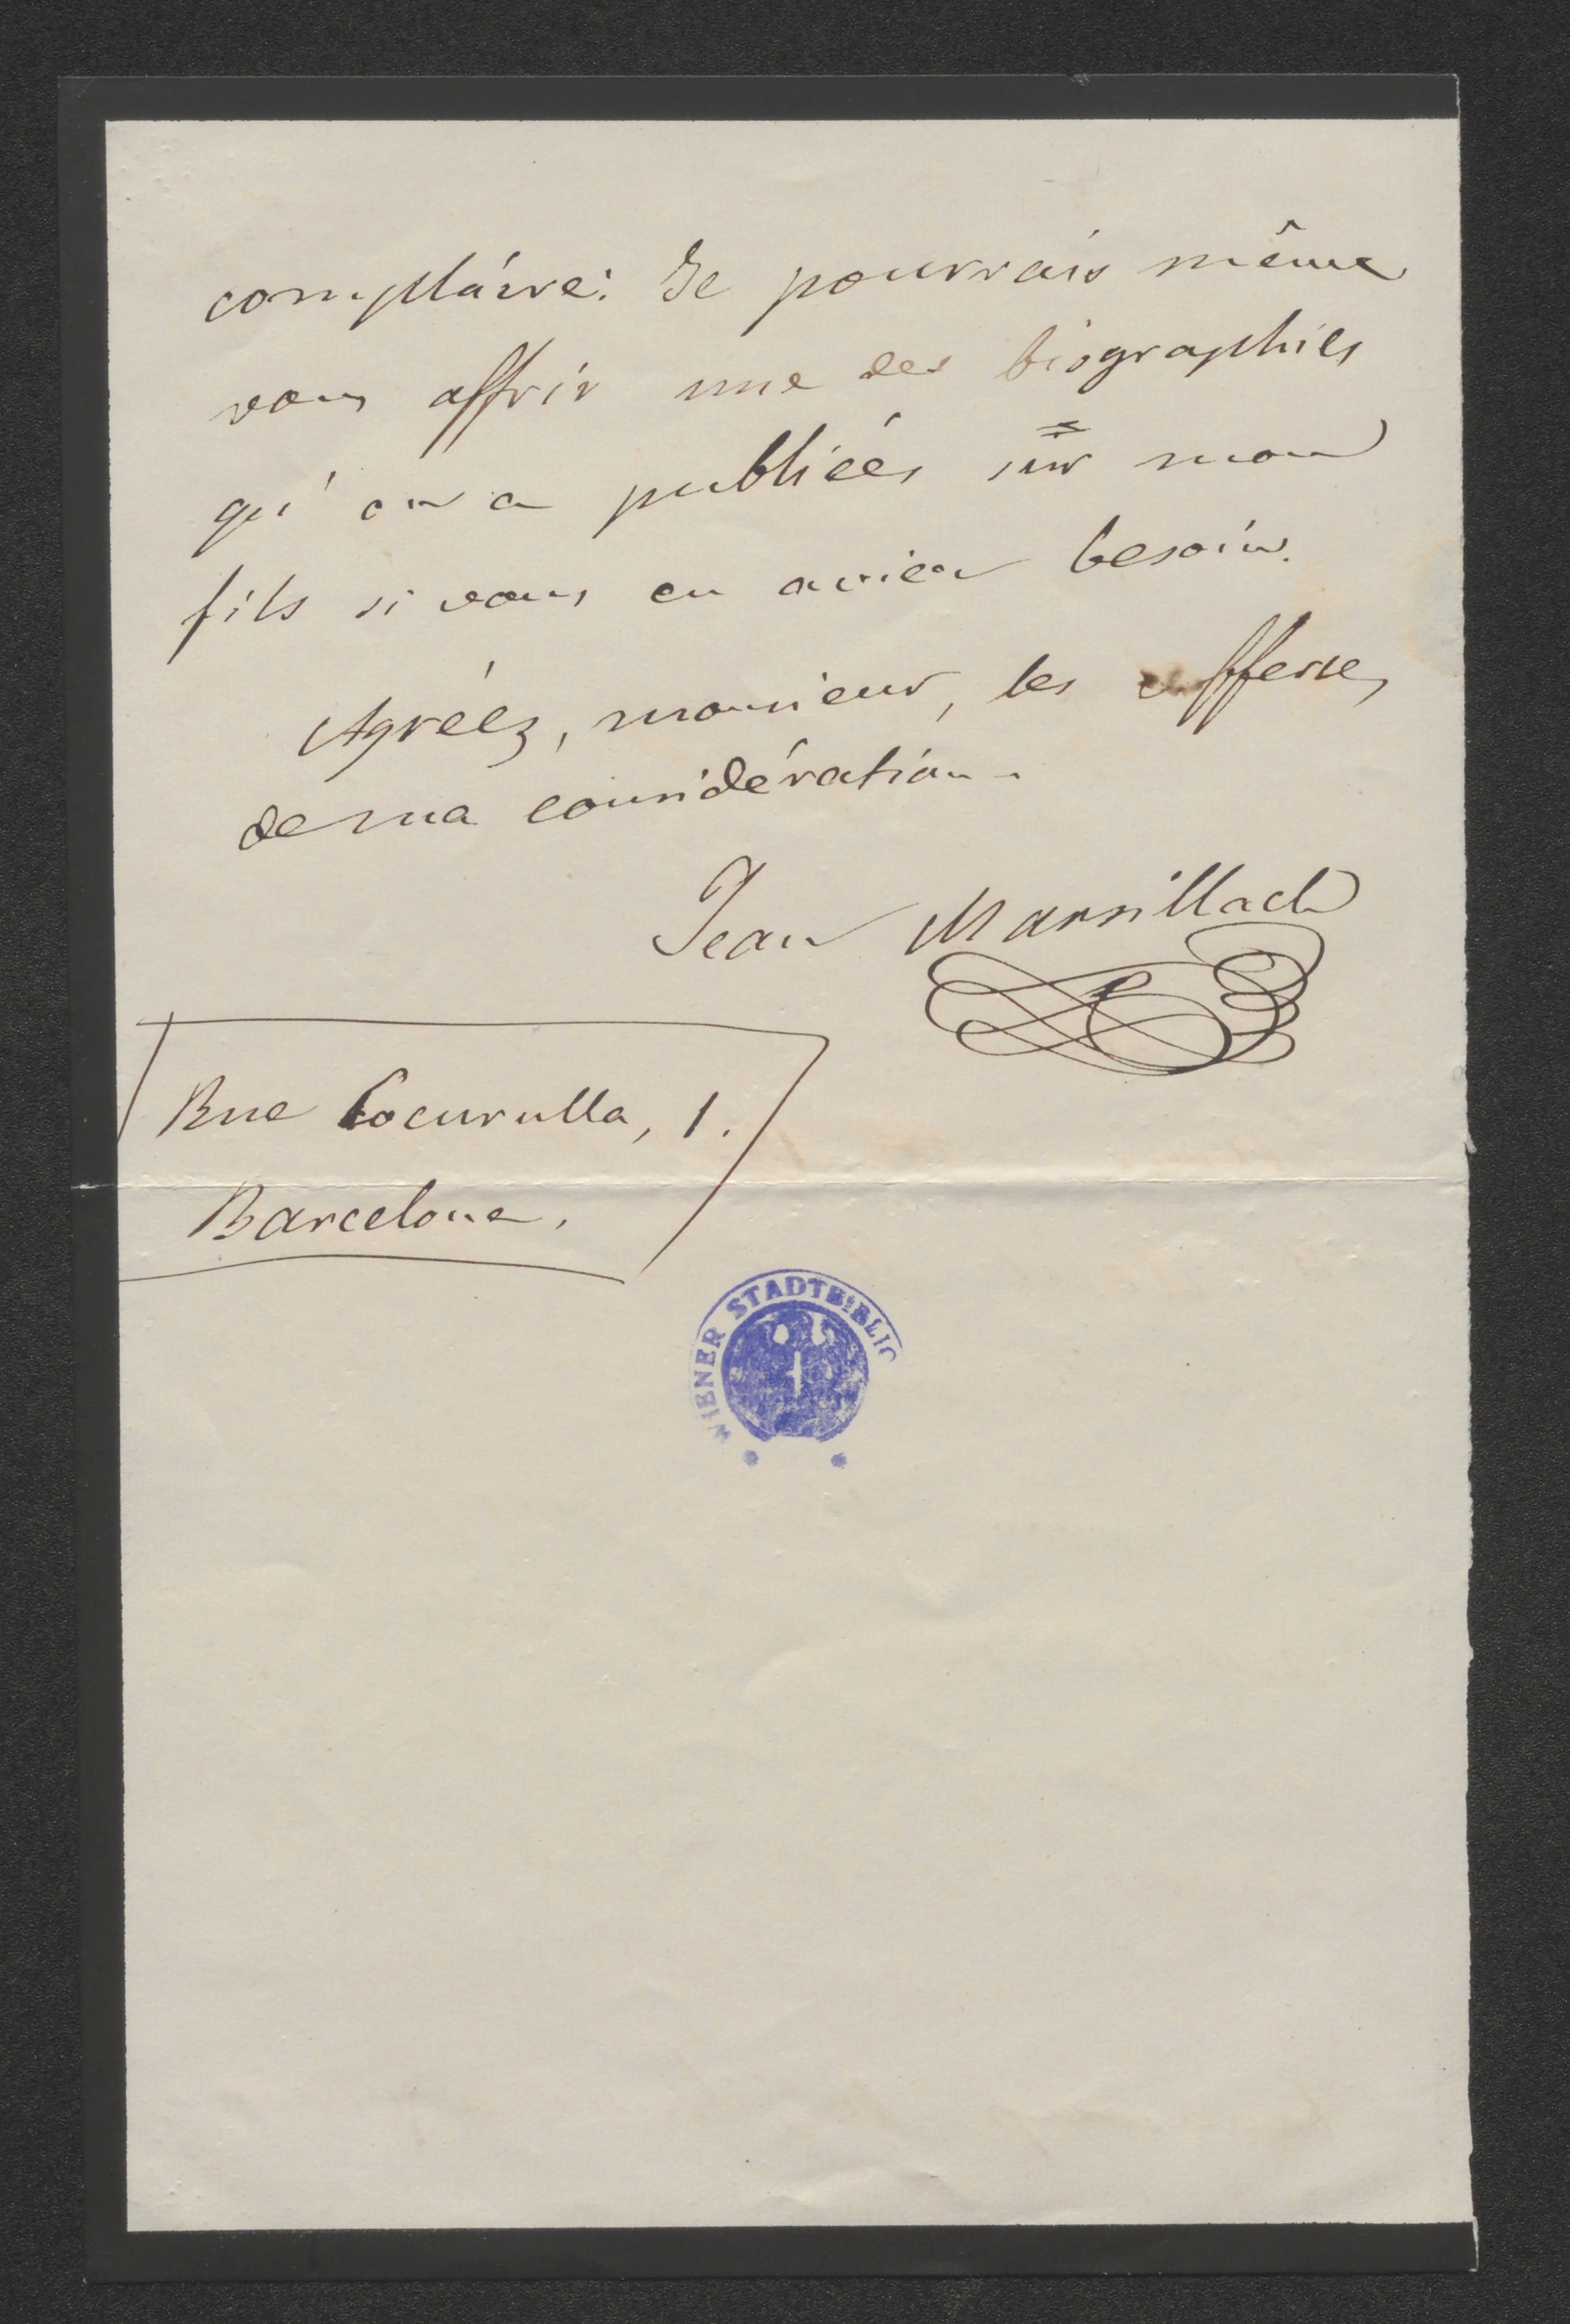 complaire: Je pourrais même
vous offrir une des biographies
qu' on a publiées sur mon
fils si vous en aviez besoin.
Agréez, monsieur, les
de ma considération.
Jean Marsillach
Rue Cocurulla, 1.
Barcelone.
WIENER STADTBIBLIO